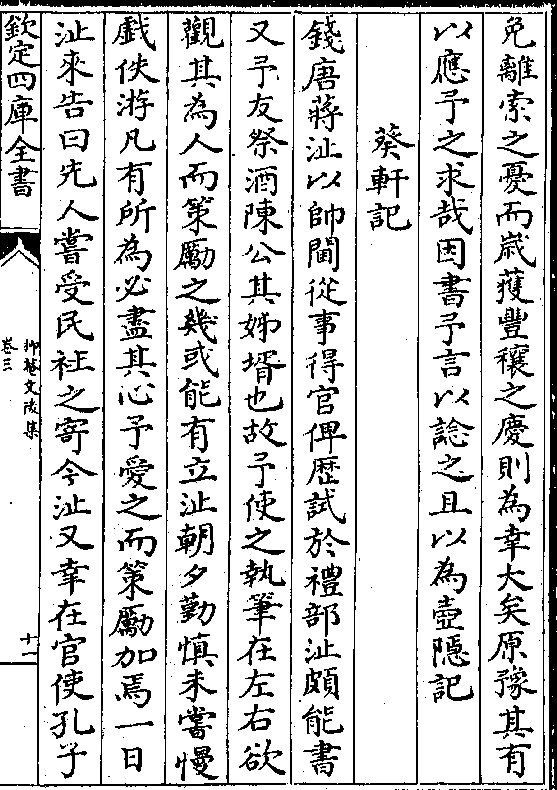 免離索之憂而嵗獲豐穰之慶則為幸大矣原豫其有
以應予之求哉因書予言以諗之且以為壺隠記
葵軒記
錢唐蔣沚以帥閫從事得官俾歴試於禮部沚頗能書
又予友祭酒陳公其姊壻也故予使之執筆在左右欲
觀其為人而策勵之幾或能有立沚朝夕勤慎未嘗慢
戯佚游凡有所為必盡其心予愛之而策勵加焉一日
沚來告曰先人嘗受民社之寄今沚又幸在官使孔子
欽定四庫全書
抑菴文後集
卷三
十一